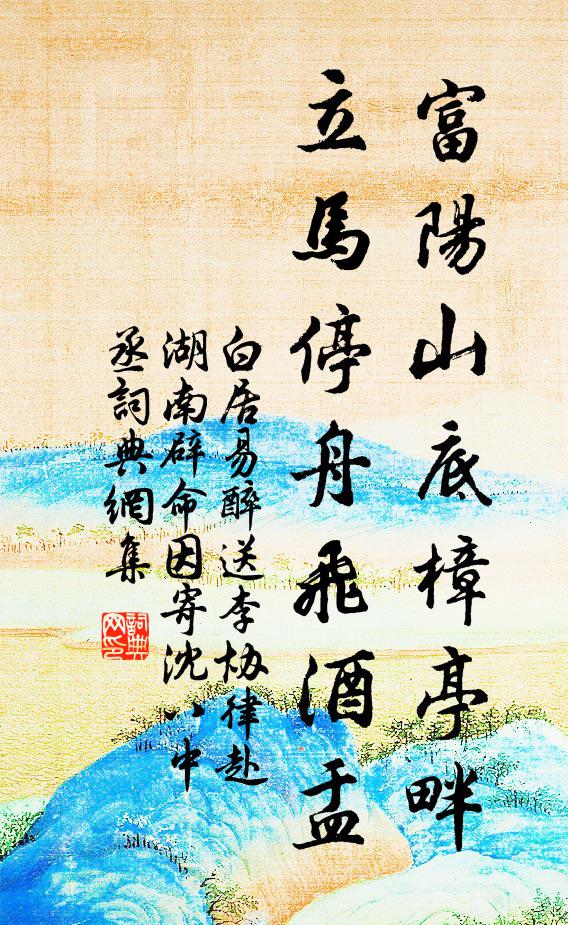 富陽山底樟亭畔
立馬停舟飛酒盂
白居易醉送李協律赴
湖南辟命因寄沈八中
丞詞典網集
詞典
网